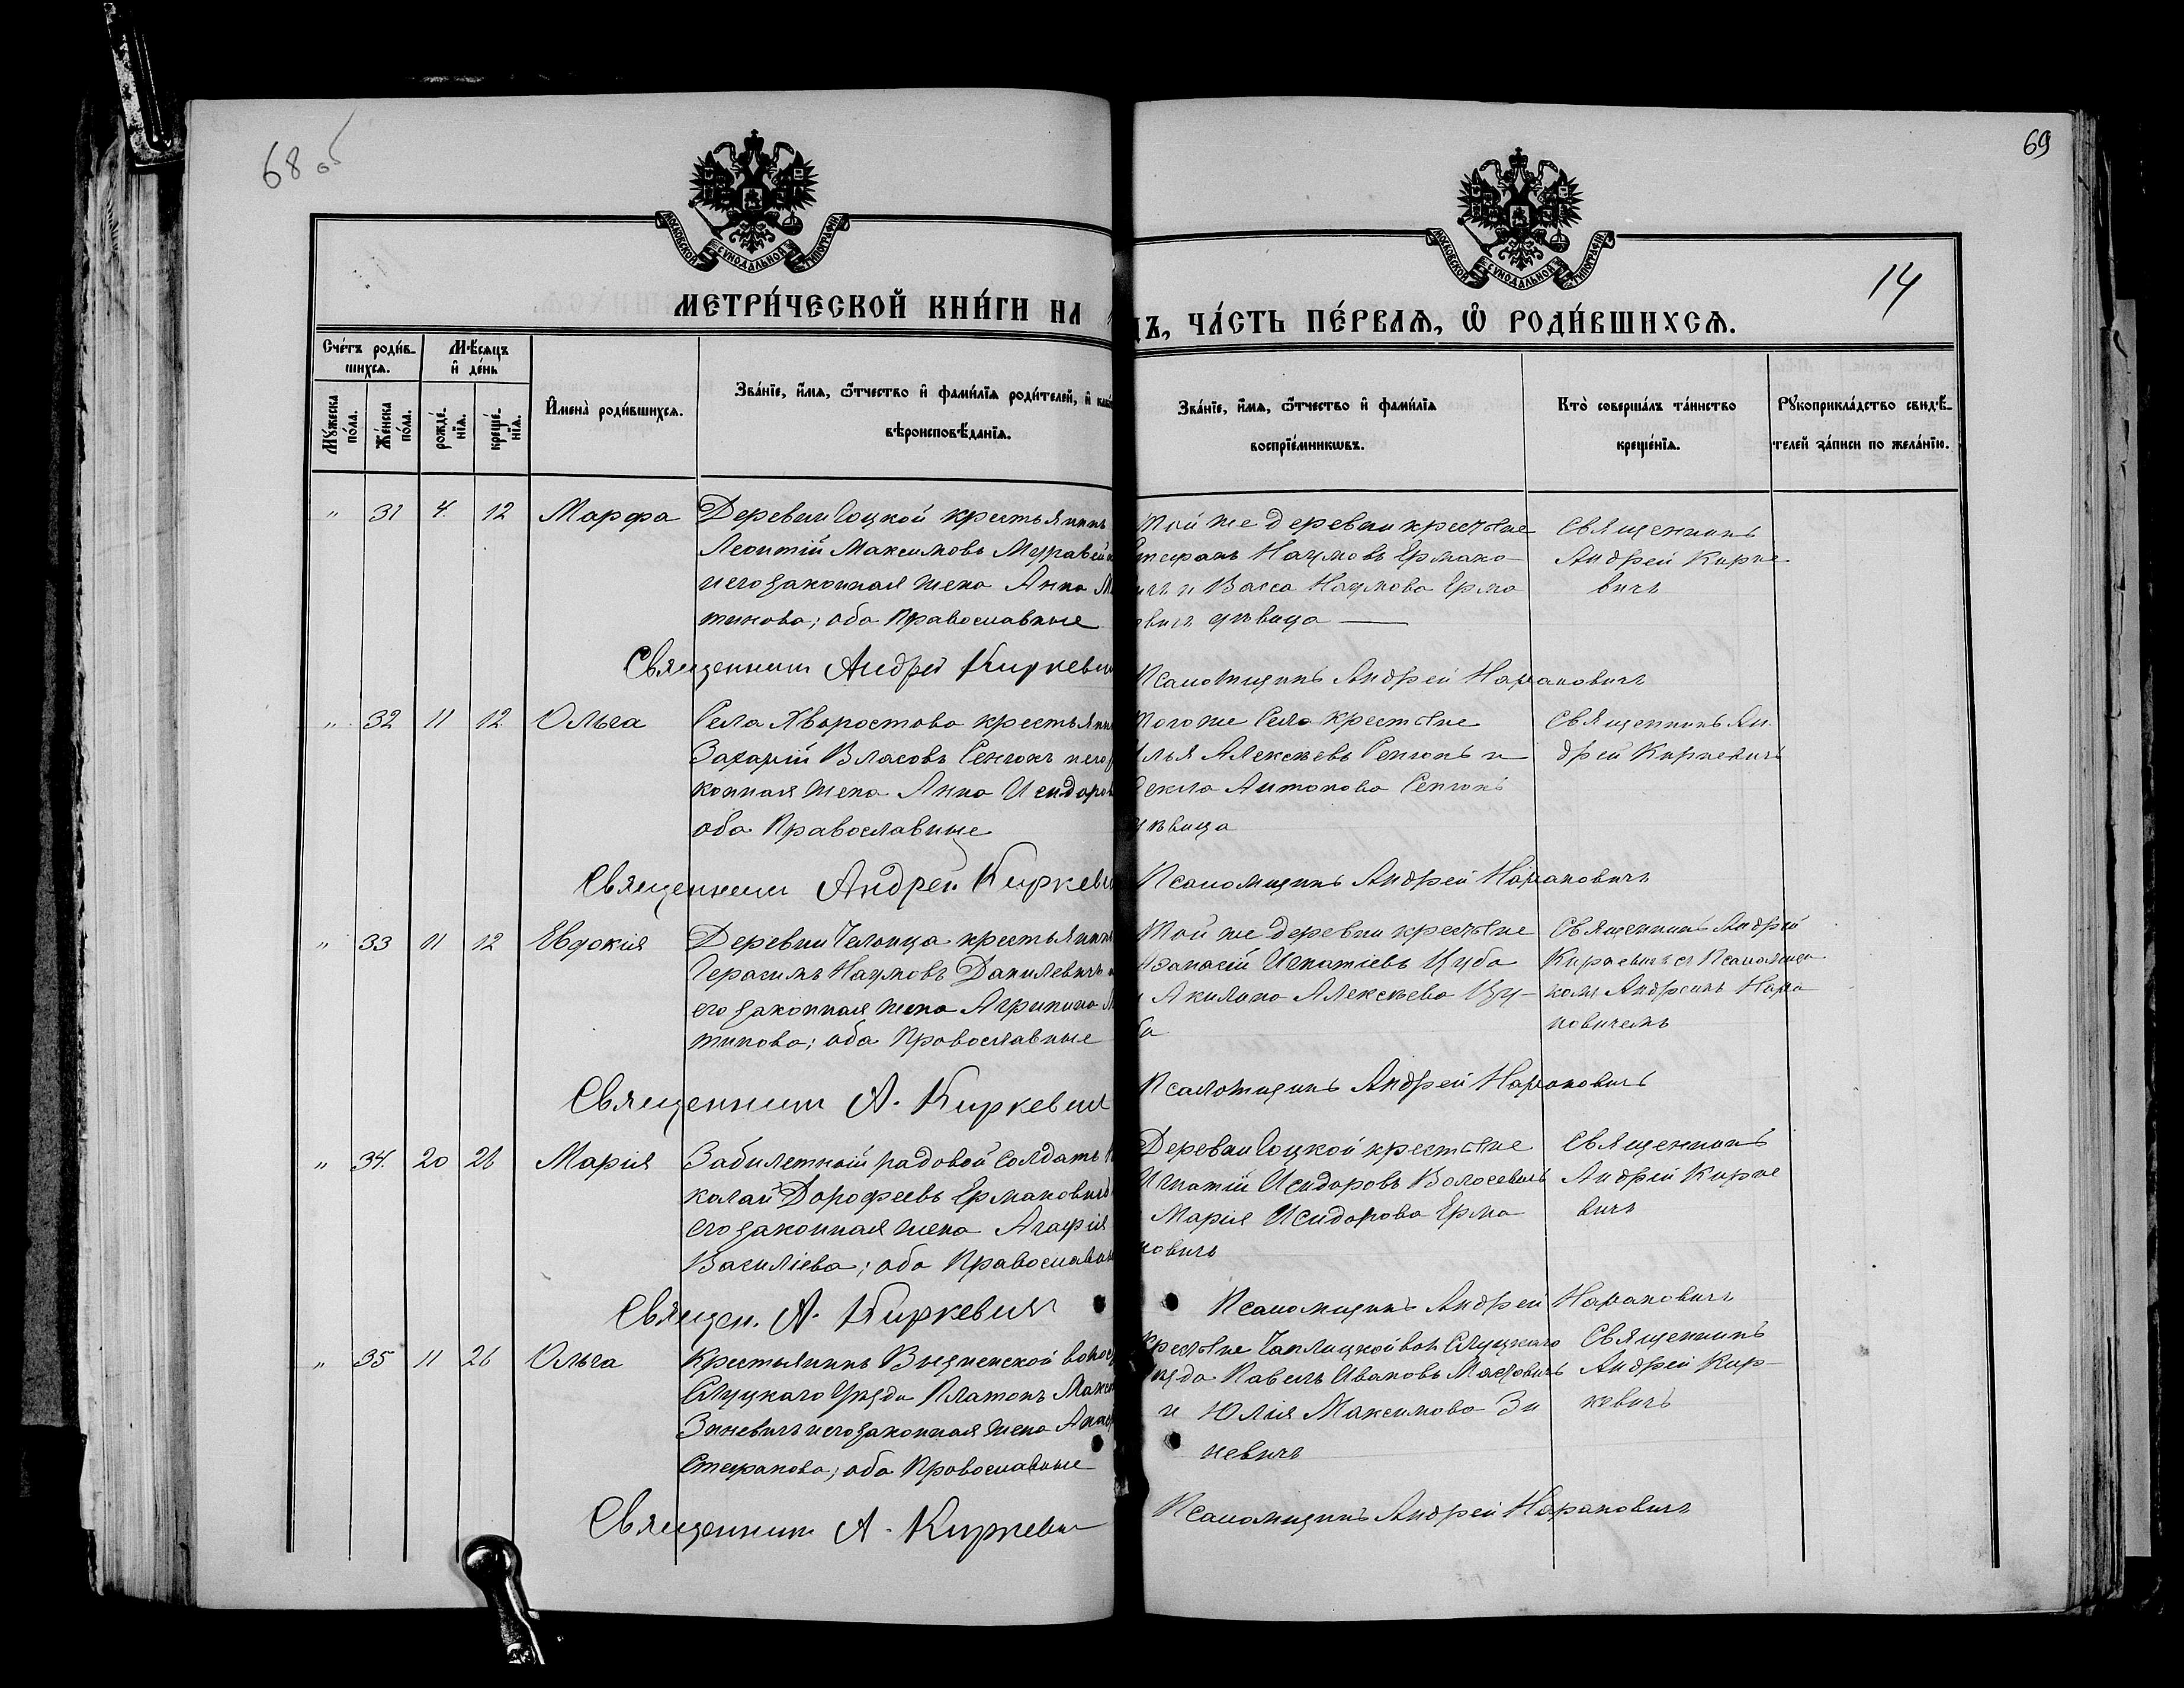 68 об
69
14
МОСКОВСКОЙ СѴНОДАЛЬНОЙ ТИПОГРАФІИ
МОСКОВСКОЙ СѴНОДАЛЬНОЙ ТИПОГРАФІИ
МЕТРИ́ЧЕСКОЙ КНИ́ГИ НА
ДЪ, ЧА́СТЬ ПЕ́РВАѦ, Ѽ РОДИ́ВШИХСѦ.
Сче́тъ роди́в-
шихсѧ.
Мꙋ́жеска
по́ла.
Же́нска
по́ла.
Мѣ́сѧцъ
и҆ де́нь
рожде́-
нїѧ.
креще́-
нїѧ.
И҆мена̀ роди́вшихсѧ.
Зва́нїе, и҆́мѧ, ѻ҆́тчество и҆ фами́лїѧ роди́телей, и҆
вѣроисповѣ́данїѧ.
Зва́нїе, и҆́мѧ, ѻ҆́тчество и҆ фами́лїѧ
воспрїе́мникѡвъ.
Кто̀ соверша́лъ та́инство
креще́нїѧ.
Рꙋкоприкла́дство свидѣ́-
телей за́писи по жела́нїю.
" 31 4. 12 Марфа
Деревни Соцкой крестьянинъ
Леонтій Максимовъ Муравей
и его законная жена Анна М
тинова; оба Православные
Той же деревни крестьяне
Стефанъ Наумовъ Ермако-
вичъ и Васса Наумова Ерма
ковичъ дѣвица
Священникъ
Андрей Кирке
вичъ
Священникъ Андрей Киркевич
Псаломщикъ Андрей Наранович
" 32 11 12 Ольга
Села Хворостова крестьянин
Захарій Власовъ Сенюкъ и его за
конная жена Анна Исидоров
оба Православные
Того же Села крестьяне
Илья Алексѣевъ Сенюкъ и
Фекла Антонова Сенюкъ
дѣвица
Священникъ Ан-
дрей Киркевичъ
Священникъ Андрей Киркеви
Псаломщикъ Андрей Нарановичъ
" 33 11 12 Евдокія
Деревни Челонца крестьянинъ
Герасимъ Наумовъ Данилевичъ и
его законная жена Агрипина М
тинова; оба Православные
Той же деревни крестьяне
Афанасій Игнатіевъ Цуба
и Акилина Алексѣева Цу-
ба
Священникъ Андрей
Киркевичъ съ Псаломщи
комъ Андреемъ Нара
новичемъ
Священникъ А. Киркевич
Псаломщикъ Андрей Нарановичъ
" 34. 20 26 Марія
Забилетной рядовой Солдатъ Ни
колай Дорофеевъ Ермаковичъ
его законная жена Агафія
Василіева; оба Православны
Деревни Соцкой крестьяне
Игнатій Исидоровъ Волосевичъ
Марія Исидорова Ерма
ковичъ
Священникъ
Андрей Кирке
вичъ
Священ. А. Киркевич
Псаломщикъ Андрей Нарановичъ
" 35 11 26 Ольга
Крестьянинъ Вызненской волос
Слуцкаго Уѣзда Платонъ Макси
Зиневичъ и его законная жена
Стефанова; оба Православные
Крестьяне Чаплицкой вол. Слуцкаго
уѣзда Павелъ Ивановъ
и Юлія Максимова Зи
невичъ
Священникъ
Андрей Кир-
кевичъ
Священникъ А. Киркевич
Псаломщикъ Андрей Нарановичъ